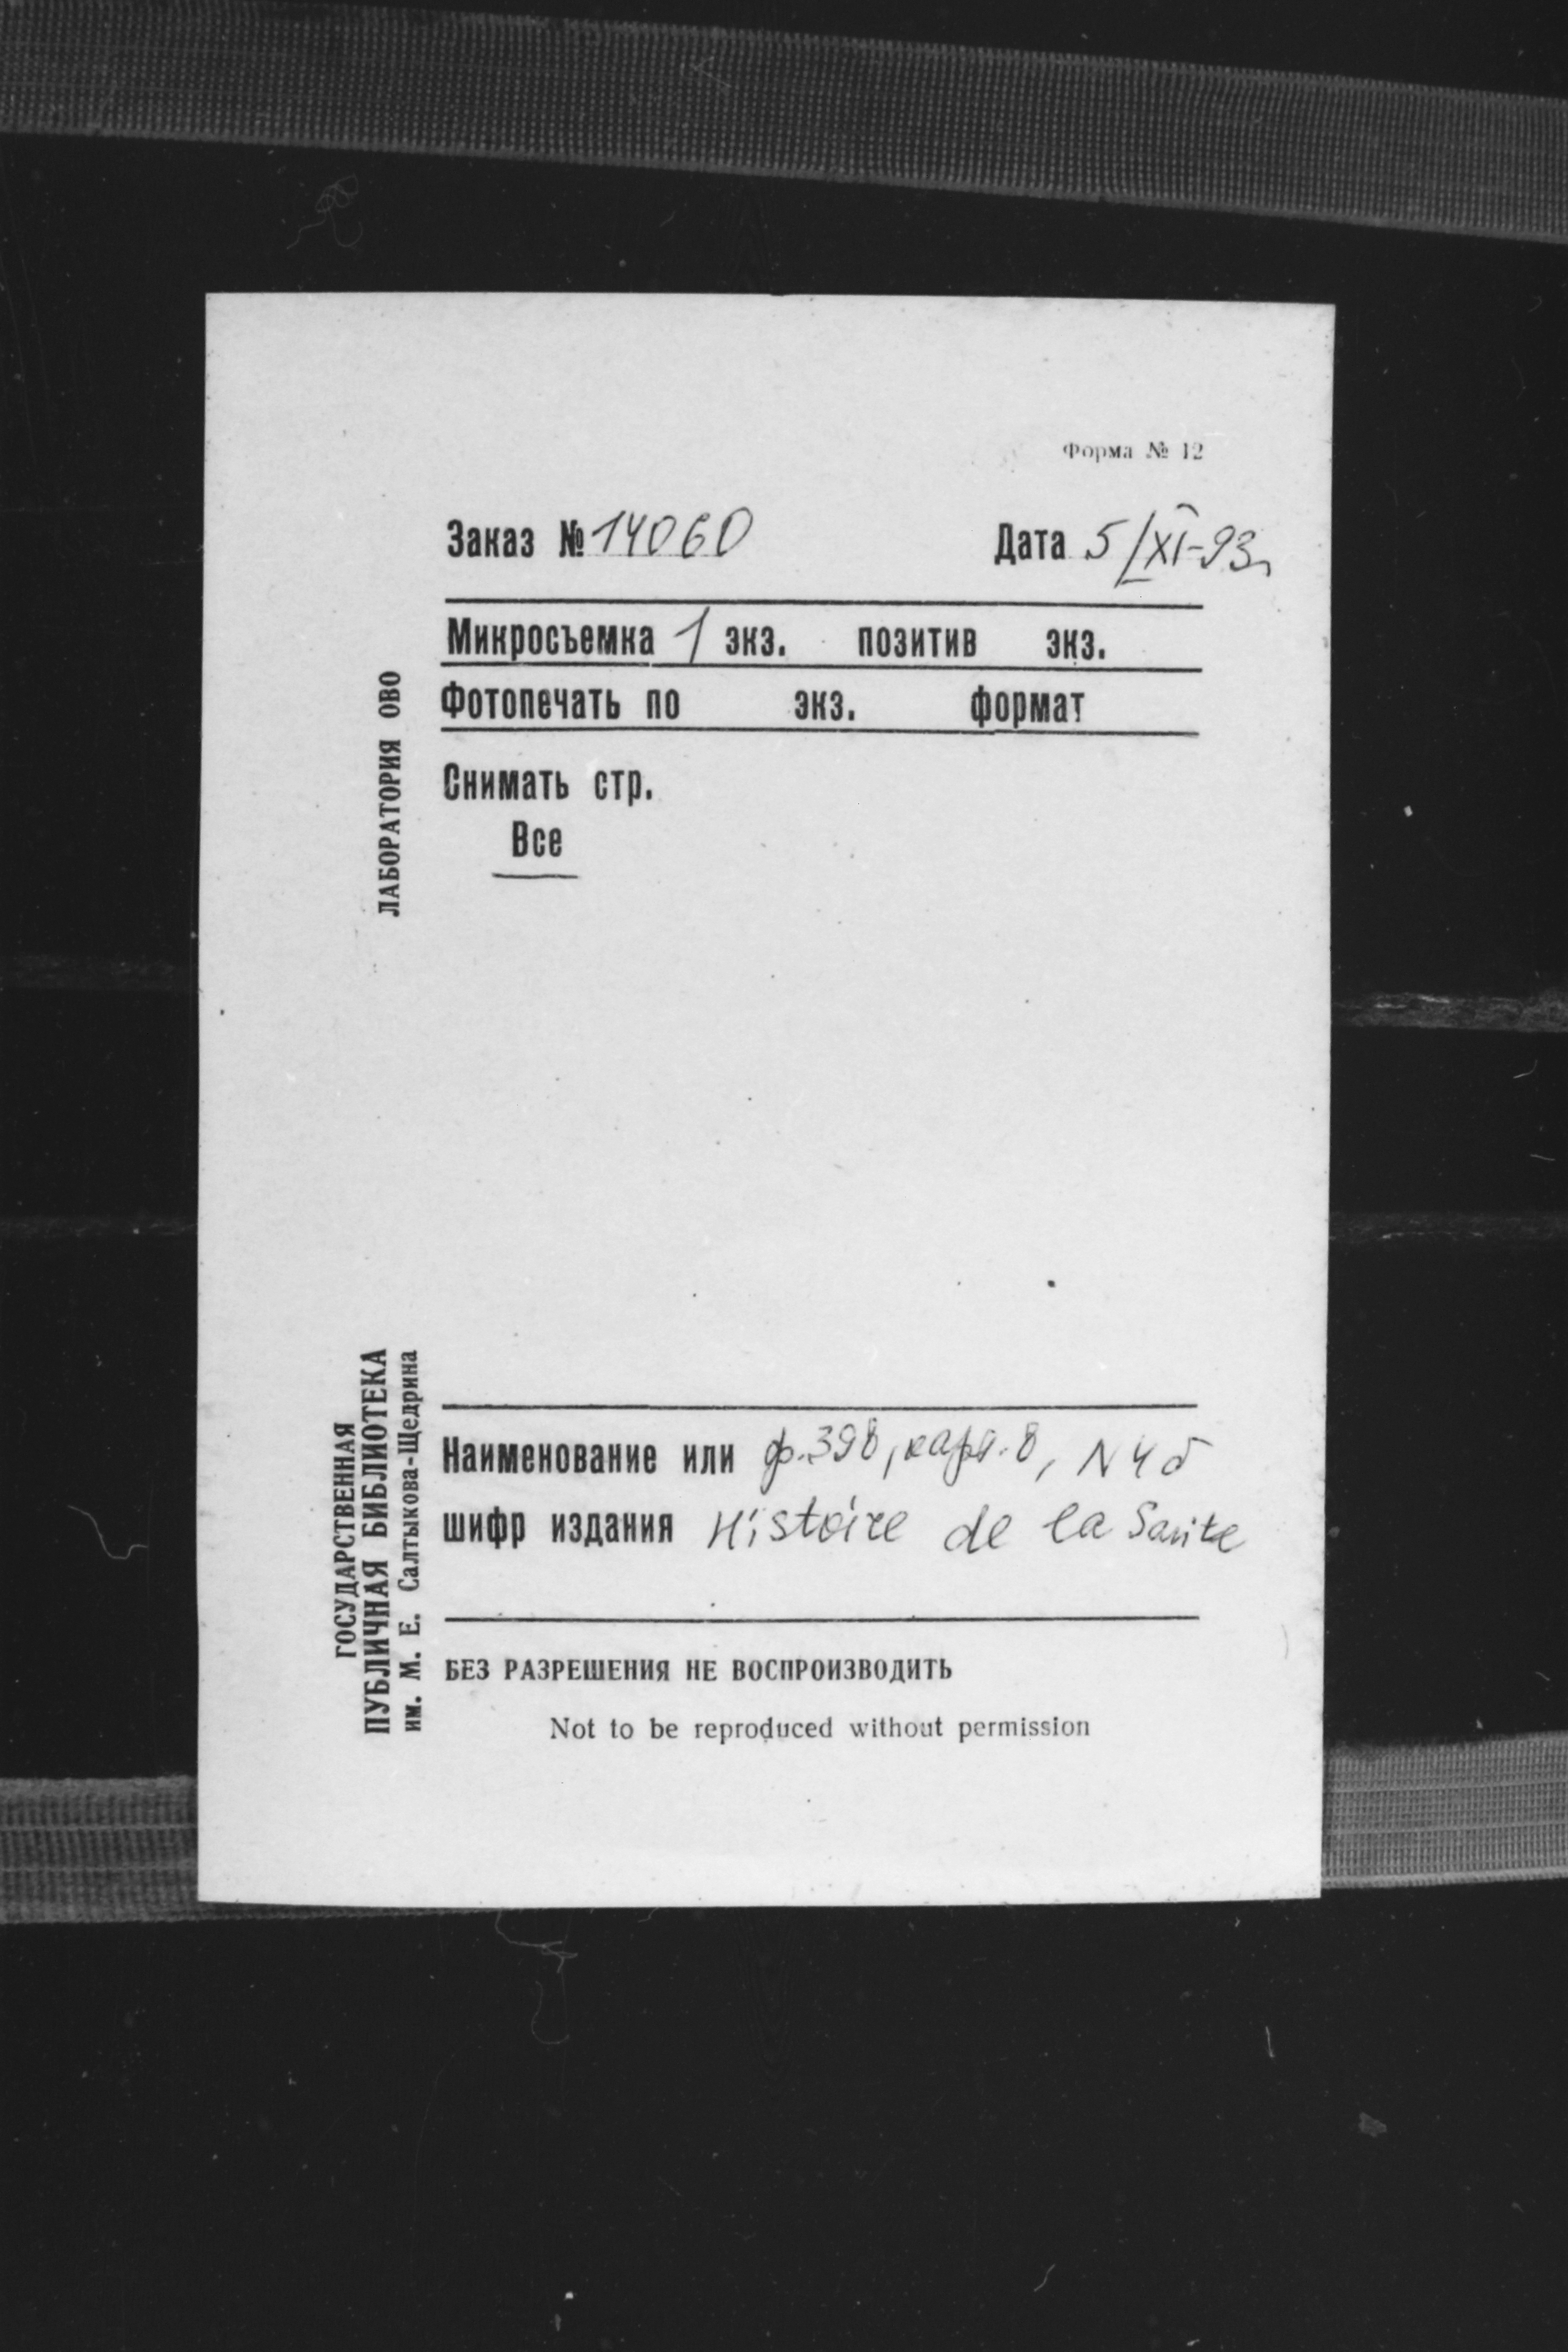 Форма № 12
Заказ № 14060 Дата 5/XI-93г
Микросъемка 1 экз. позитив экз.
Фотопечать по экз. формат
Снимать стр.
Все
ЛАБОРАТОРИЯ ОВО
ГОСУДАРСТВЕННАЯ
ПУБЛИЧНАЯ БИБЛИОТЕКА
им. М. Е. Салтыкова-Щедрина
Наименование или ф. 398, карт. 8, N 4б
шифр издания Histoire de la Sante
БЕЗ РАЗРЕШЕНИЯ НЕ ВОСПРОИЗВОДИТЬ
Not to be reproduced without permission